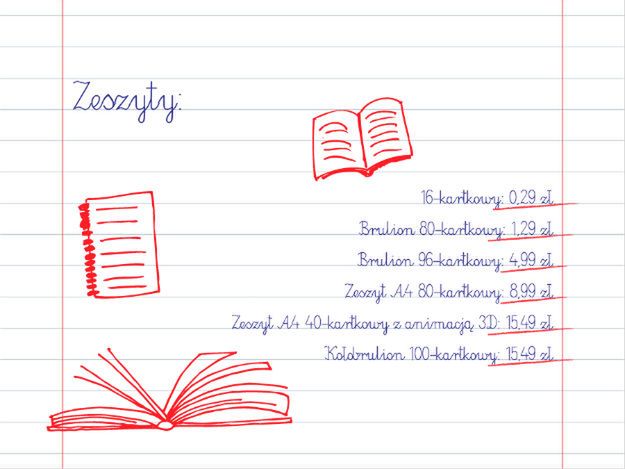 Zeszyty:
16-kartkowy: 0,29 zł
Brulion 80-kartkowy: 1,29 zł
Brulion 96-kartkowy: 4,99 zł
Zeszyt A4 80-kartkowy: 8,99 zł
Zeszyt A4 40-kartkowy z animacją 3D: 15,49 zł
Kołobrulion 100-kartkowy: 15,49 zł